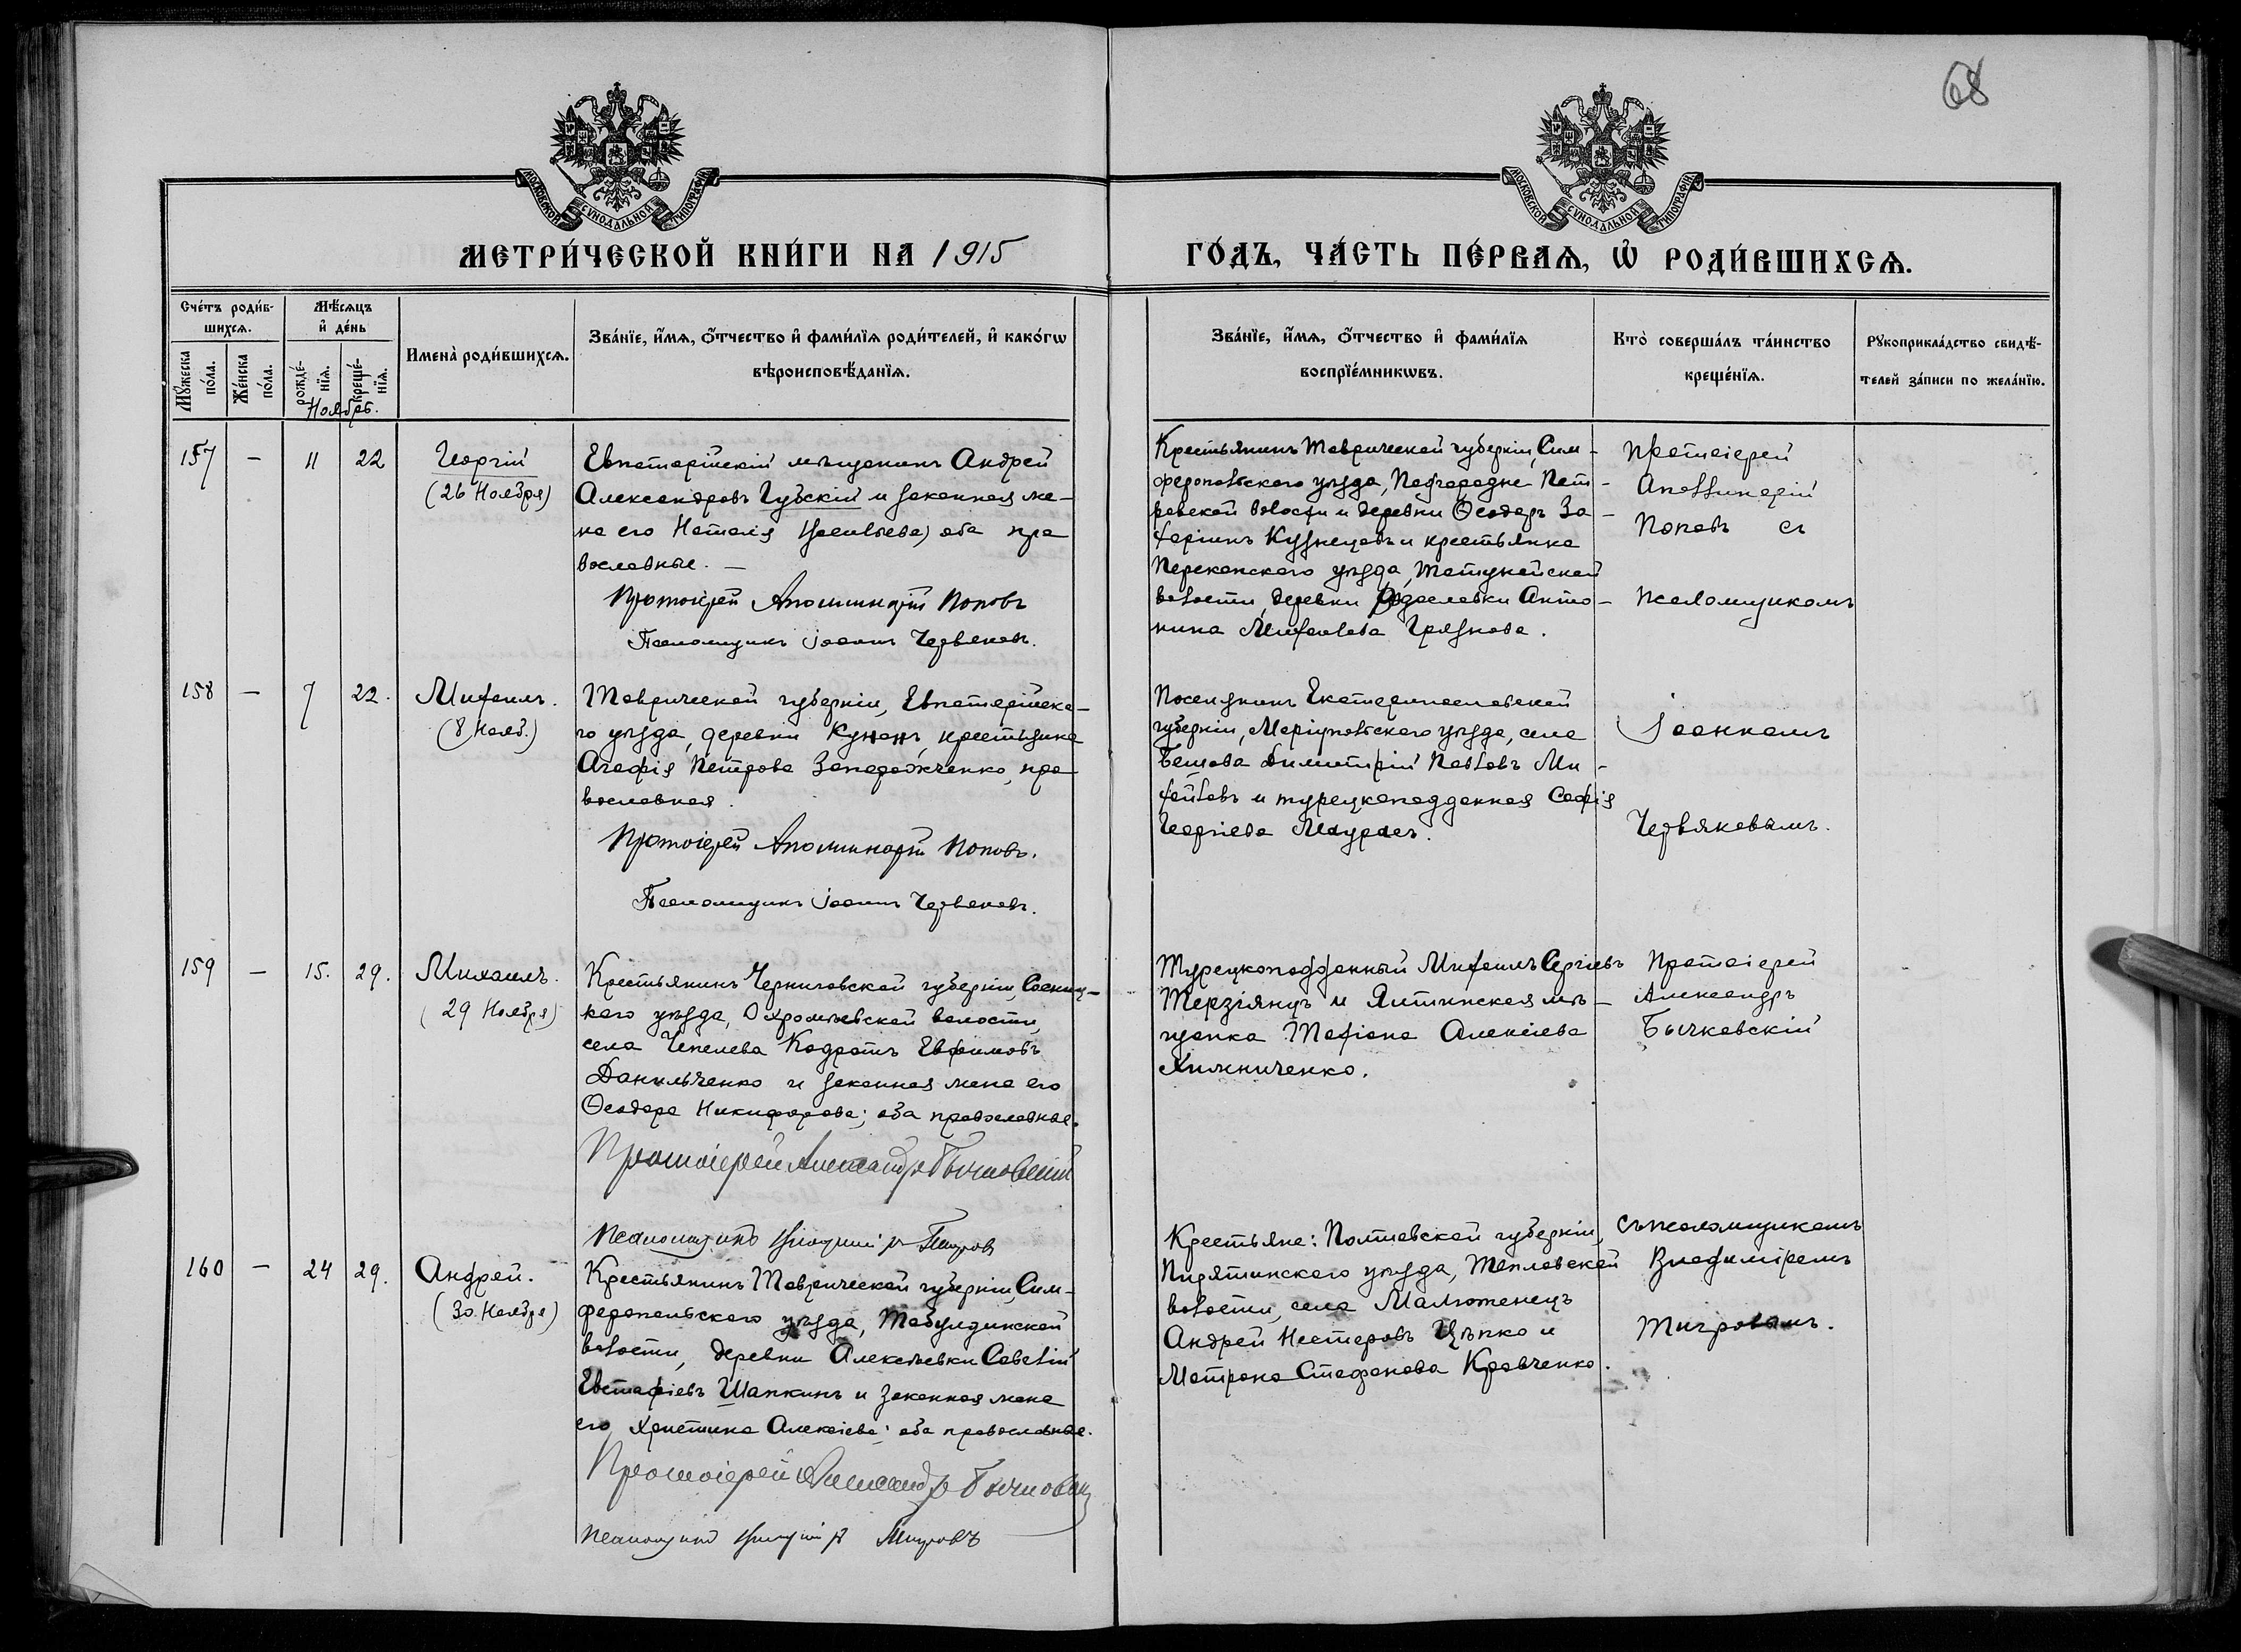 68
МОСКОВСКОЙ СѴНОДАЛЬНОЙ ТИПОГРАФІИ
МОСКОВСКОЙ СѴНОДАЛЬНОЙ ТИПОГРАФІИ
МЕТРИ́ЧЕСКОЙ КНИ́ГИ НА 1915
ГО́ДЪ, ЧА́СТЬ ПЕ́РВАѦ, Ѽ РОДИ́ВШИХСѦ.
Сче́тъ роди́в-
шихсѧ.
Мꙋ́жеска по́ла.
Же́нска по́ла.
Мѣ́сѧцъ
и҆ де́нь
рожде́-
нїѧ.
креще́-
нїѧ.
Ноябрь.
Имена̀ роди́вшихсѧ.
Зва́нїе, и҆́мѧ, ѻ҆́тчество и҆ фами́лїѧ роди́телей, и҆ како́гѡ
вѣроисповѣ́данїѧ.
Зва́нїе, и҆́мѧ, ѻ҆́тчество и҆ фами́лїѧ
воспрїе́мникѡвъ.
Кто̀ соверша́лъ та́инство
креще́нїѧ.
Рꙋкоприкла́дство свидѣ́-
телей за́писи по жела́нїю.
157 — 11 22
Георгій
(26 Ноября)
Евпаторійскій мѣщанинъ Андрей
Александровъ Губскій и законная же-
на его Наталія Васильева, оба пра
вославные. —
Протоіерей Аполлинарій Поповъ
Псаломщикъ Іоаннъ Червяковъ.
Крестьянинъ Таврической губерніи, Сим-
феропольскаго уѣзда, Подгородне-Пет-
ровской волости и деревни Ѳеодоръ За-
харіинъ Кузнецовъ и крестьянка
Перекопскаго уѣзда,
волости, деревни Анто-
нина Михайлова Грязнова.
Протоіерей
Аполлинарій
Поповъ съ
псаломщикомъ
158 — 7 22.
Михаилъ.
(8 Нояб.)
Таврической губерніи, Евпаторійска-
го уѣзда, деревни Кунанъ, крестьянка
Агафія Петрова Запорожченко, пра
вославная.
Протоіерей Аполлинарій Поповъ.
Псаломщикъ Іоаннъ Червяковъ.
Поселянинъ Екатеринославской
губерніи, Маріупольскаго уѣзда, села
Бешова Димитрій Павловъ Ми-
хайловъ и турецкоподданная Софія
Георгіева
Іоанномъ
Червяковымъ.
159 — 15. 29.
Михаилъ.
(29 Ноября)
Крестьянинъ Черниговской губерніи, Сосниц-
каго уѣзда, Охромѣевской волости,
села Чепелева Кодратъ Евфимовъ
Данильченко и законная жена его
Ѳеодора Никифорова; оба православные.
Протоіерей Александръ Бычковскій
Псаломщикъ Владиміръ Тигровъ
Турецкоподданный Михаилъ Сергіевъ
Терзіянцъ и Ялтинская мѣ-
щанка Татіана Алексіева
Химниченко.
Протоіерей
Александръ
Бычковскій
160 — 24 29.
Андрей.
(30 Ноября)
Крестьянинъ Таврической губерніи, Сим-
феропольскаго уѣзда, Табулдинской
волости, деревни Алексѣевки Савелій
Евстафіевъ Шапкинъ и законная жена
его Христина Алексіева; оба православные.
Протоіерей Александръ Бычковскій
Псаломщикъ Владиміръ Тигровъ
Крестьяне: Полтавской губерніи,
Пирятинскаго уѣзда, Тепловской
волости, села Малютенецъ
Андрей Нестеровъ Цѣпко и
Матрона Стефанова Кравченко.
съ псаломщикомъ
Владиміромъ
Тигровымъ.